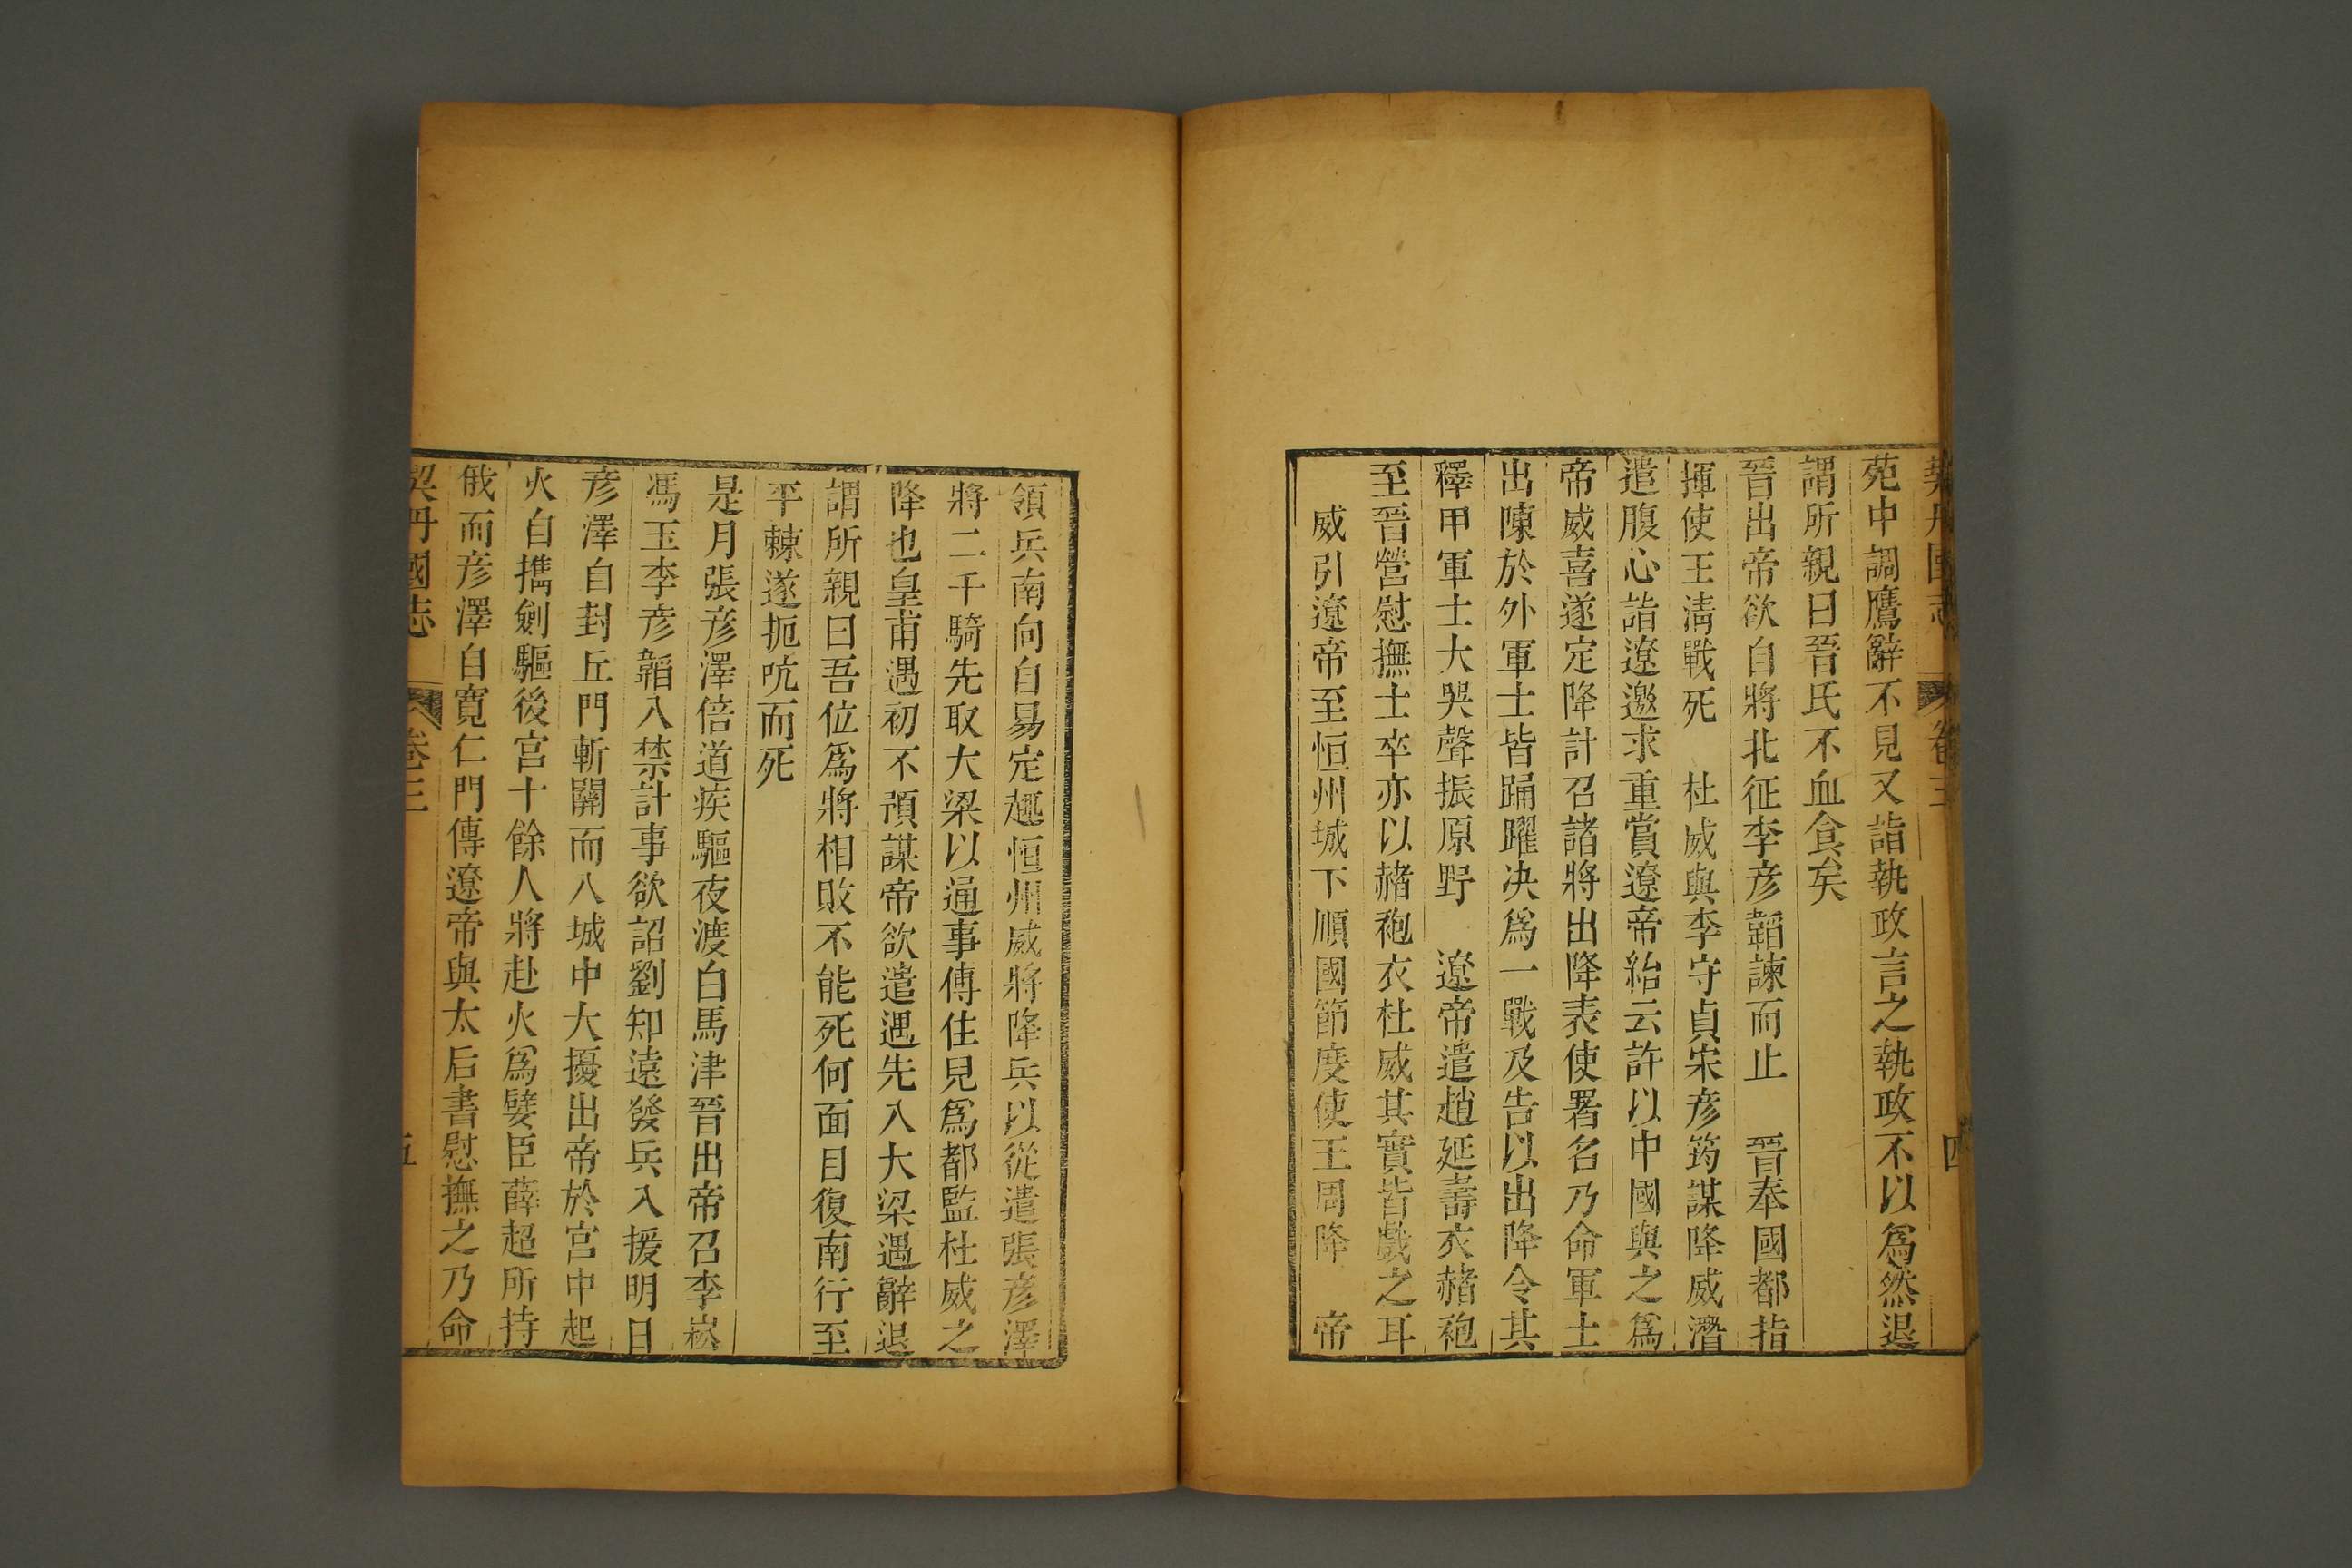 契丹國志 卷三 四
苑中調鷹辭不見又詣執政言之執政不以爲然退
謂所親曰晉氏不血食矣
晉出帝欲自將北征李彥韜諫而止 晉奉國都指
揮使王淸戰死 杜威與李守貞宋彥筠謀降威潛
遣腹心詣遼邀求重賞遼帝紿云許以中國與之爲
帝威喜遂定降計召諸將出降表使署名乃命軍士
出陳於外軍士皆踊躍决爲一戰及告以出降令其
釋甲軍士大哭聲振原野 遼帝遣趙延壽衣赭袍
至晉營慰撫士卒亦以赭袍衣杜威其實皆戲之耳
威引遼帝至恒州城下順國節度使王周降 帝
領兵南向自易定趣恒州威將降兵以從遣張彥澤
將二千騎先取大梁以通事傅住見爲都監杜威之
降也皇甫遇初不預謀帝欲遣遇先入大梁遇辭退
謂所親曰吾位爲將相敗不能死何面目復南行至
平棘遂扼吭而死
是月張彥澤倍道疾驅夜渡白馬津晉出帝召李崧
馮玉李彥韜入禁計事欲詔劉知遠發兵入援明日
彥澤自封丘門斬關而入城中大擾出帝於宮中起
火自擕劍驅後宮十餘人將赴火爲嬖臣薛超所持
俄而彥澤自寬仁門傳遼帝與太后書慰撫之乃命
契丹國志 卷三 五